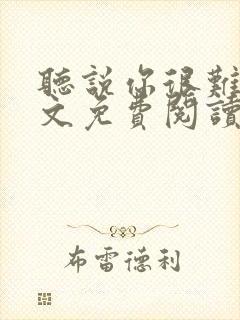 聽說你很難
文免費閱讀
布雷德利